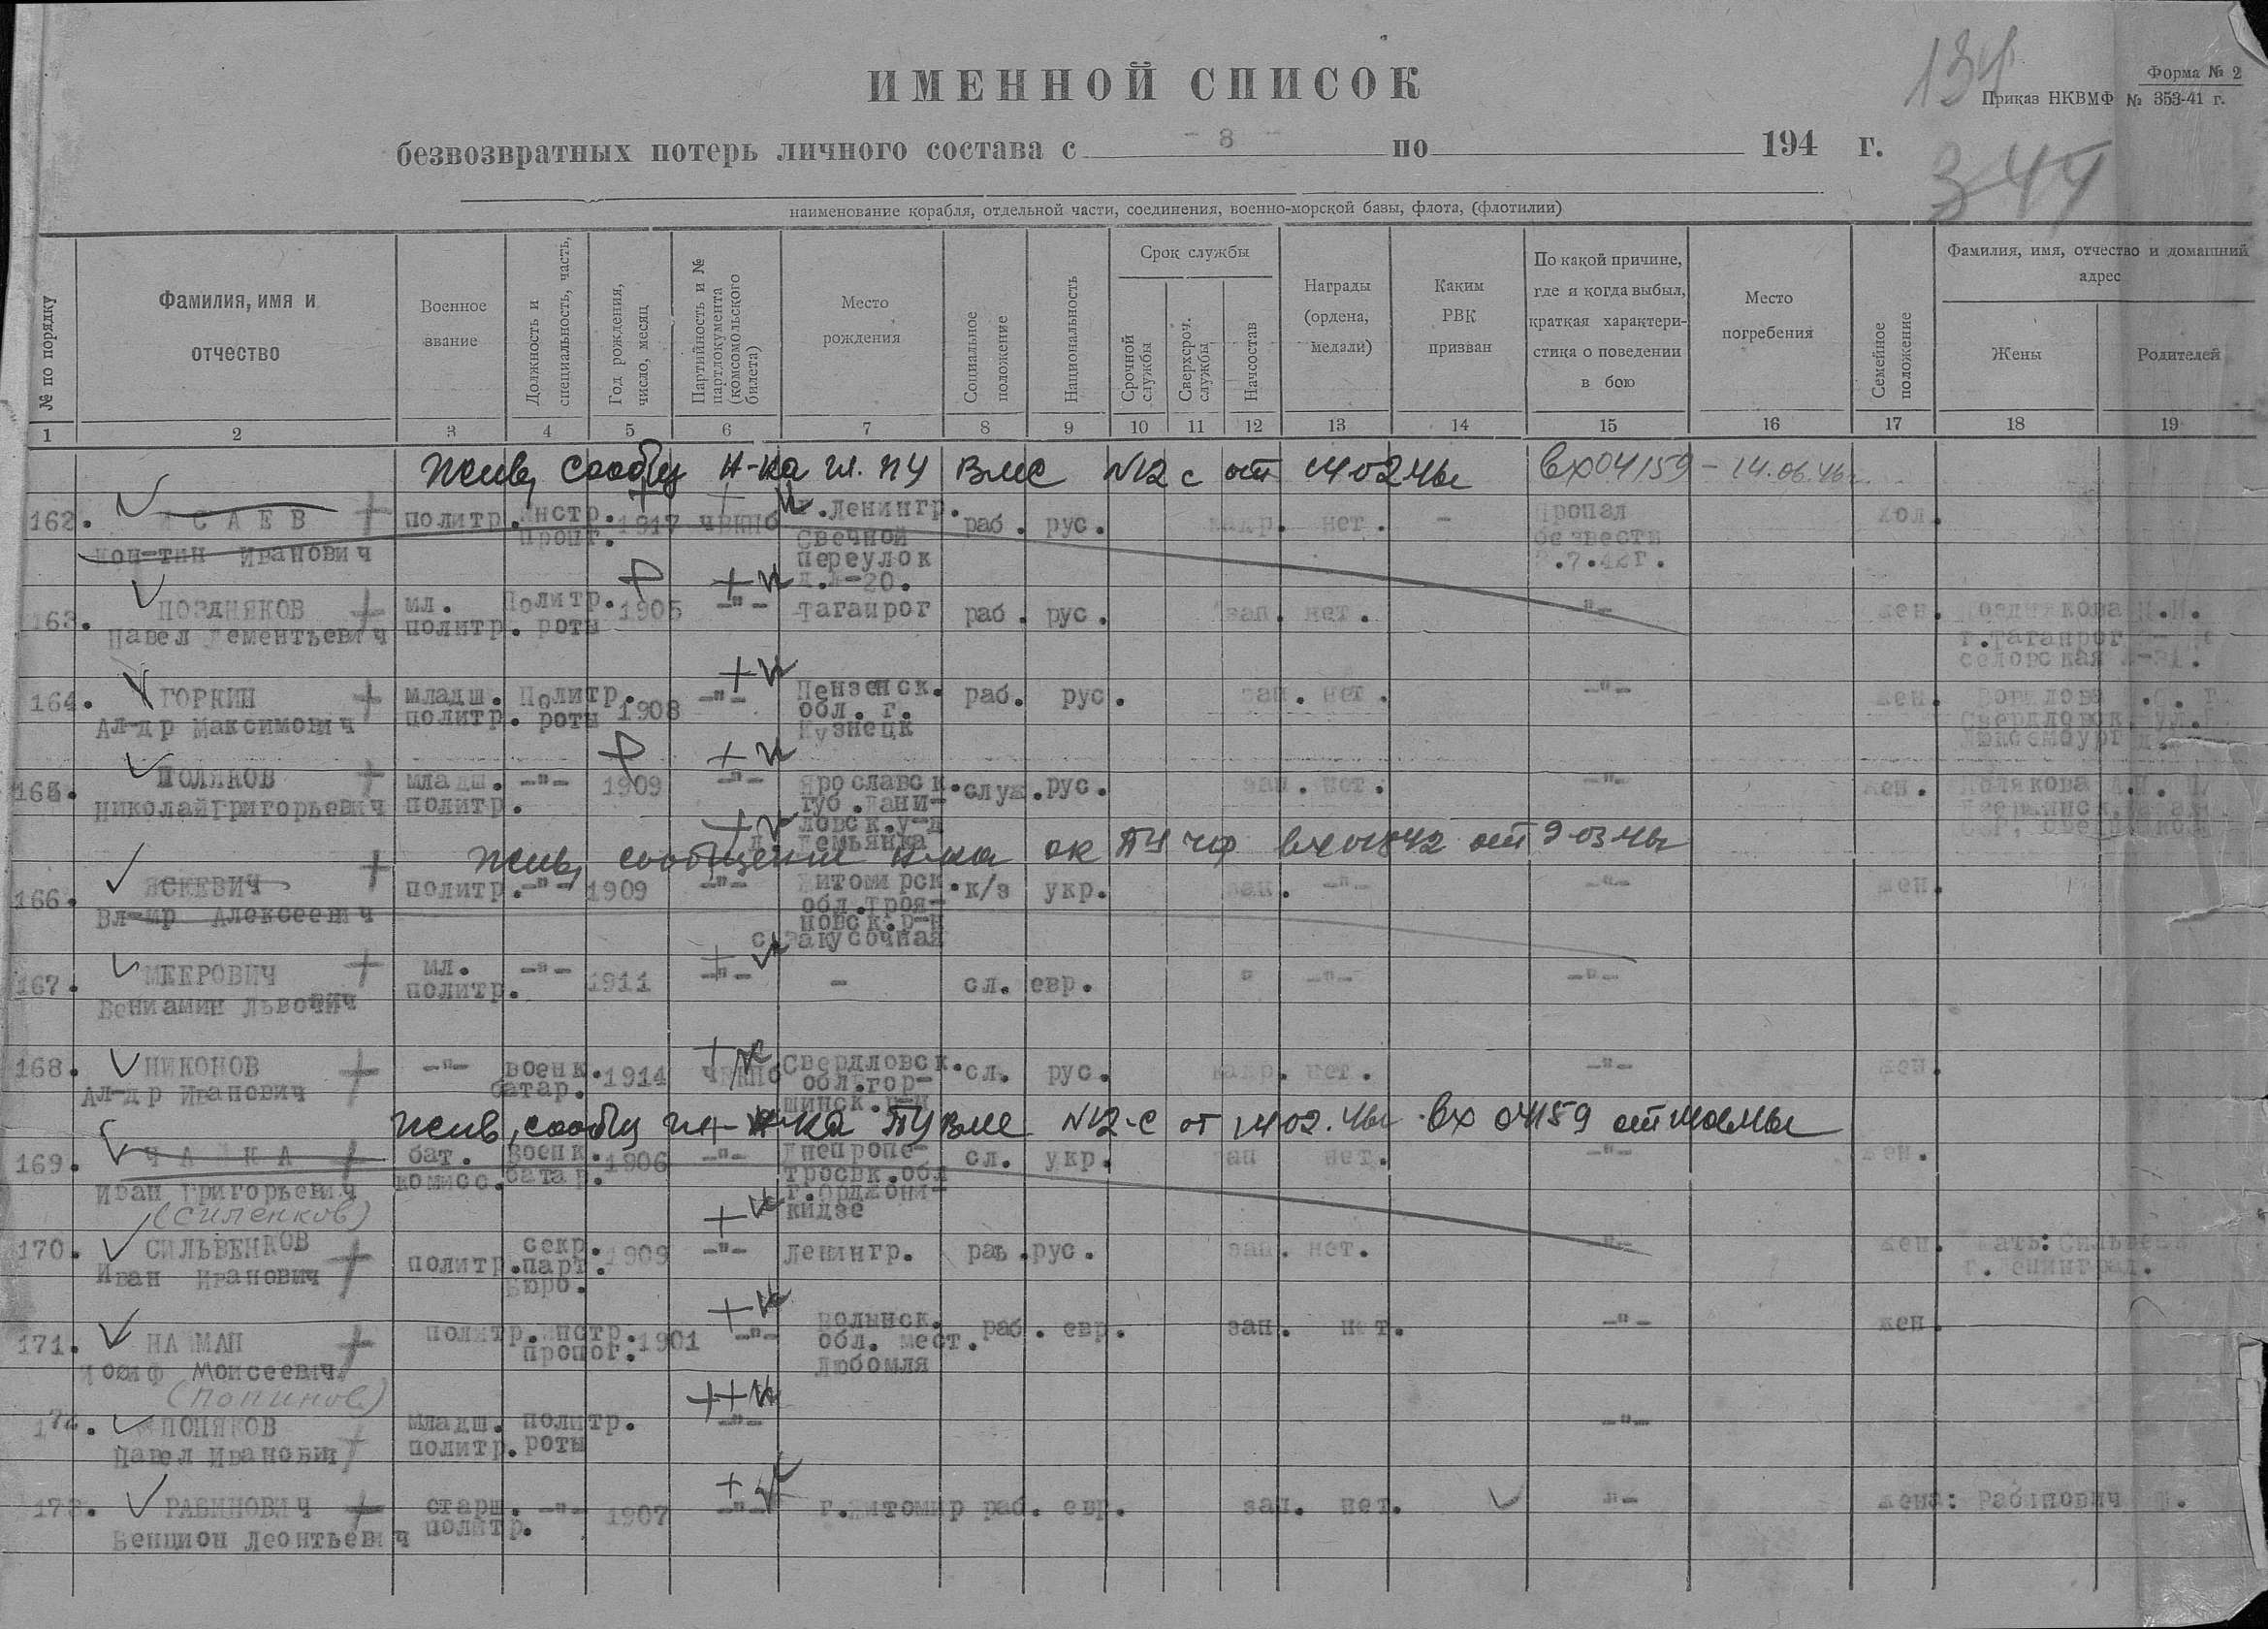 134
Форма № 2
Приказ НКВМФ № 353-41 г.
ИМЕННОЙ СПИСОК
безвозвратных потерь личного состава с - 8 - по 194 г.
344
наименование корабля, отдельной части, соединения, военно-морской базы, флота, (флотилии)
№ по порядку
Фамилия, имя и отчество
Военное звание
Должность и специальность, часть,
Год рождения, число, месяц
Партийность и № партдокумента (комсомольского билета)
Место рождения
Социальное положение
Национальность
Срок службы
Срочной службы
Сверхсроч. службы
Начсостав
Награды (ордена, медали)
Каким РВК призван
По какой причине, где и когда выбыл, краткая характеристика о поведении в бою
Место погребения
Семейное положение
Фамилия, имя, отчество и домашний адрес
Жены
Родителей
1 2 3 4 5 6 7 8 9 10 11 12 13 14 15 16 17 18 19
Жив, сообщ Н-ка гл. ПУ ВМС №12 с от 14 02 46 вх 04159 - 14.06.46г.
162. ИСАЕВ политр. инстр. 1917 ЧВКПб г.Ленингр. раб. рус. кадр. нет. - Пропал хол.
Кон-тин Иванович пропг. Свечной безвести
переулок .7.42г.
д.№-20.
163. ПОЗДНЯКОВ мл. Политр. 1905 -"- Таганрог раб. рус. зап. нет. -"- жен. Позднякова
Павел Дементьевич политр. роты г.Таганрог
164. ГОРКИН младш. Политр. 1908 -"- Пензенск. раб. рус. зап. нет. -"- жен.
Ал-др Максимович политр. роты обл. г. Свердловск ул.
Кузнецк Люксембург
165. ПОЛЯКОВ младш. -"- 1909 -"- Ярославск. служ. рус. зап. нет. -"- жен. Полякова
Николай Григорьевич политр. губ. Дани-
ловск.у-д
д. Демьянка
Жив, сообщение н-ка ок ПУ ЧФ вх 01842 от 9 03 46
166. ЯСКЕВИЧ политр. -"- 1909 -"- Житомирск. к/з укр. зап. -"- -"- жен.
Вл-мр Алексеевич обл.Троя-
новск.р-н
с.Закусочная
167. МЕЕРОВИЧ мл. -"- 1911 -"- - сл. евр. " -"- -"-
Вениамин Львович политр.
168. НИКОНОВ -"- военк. 1914 ЧВКПб Свердловск. сл. рус. кадр. нет. -"- жен.
Ал-др Иванович батар. обл.гор-
шинск.р-н
Жив, сообщ гл Н-ка ПУ ВМС №12-с от 14 02.46 вх 04159
169. ЧАЙКА бат. военк. 1906 -"- Днепропе- сл. укр. зап нет. -"- жен.
Иван Григорьевич комисс. батар. тровк.обл
г.Орджони-
кидзе
(Силенков)
170. СИЛЬВЕНКОВ политр. секр. 1909 -"- Ленингр. раб. рус. зап. нет. -"- жен. мать:
Иван Иванович парт. г.Ленинград.
бюро.
171. НАЙМАН политр. инстр. 1901 -"- Волынск. раб. евр. зап. нет. -"- жен.
Иосиф Моисеевич пропог. обл. мест.
Любомля
(Попинов)
172. ПОПЯКОВ младш. политр. -"- -"-
Павел Иванович политр. роты
173. РАБИНОВИЧ старш. -"- 1907 -"- г.Житомир раб. евр. зап. нет. -"- жена: Рабинович
Бенцион Леонтьевич политр.